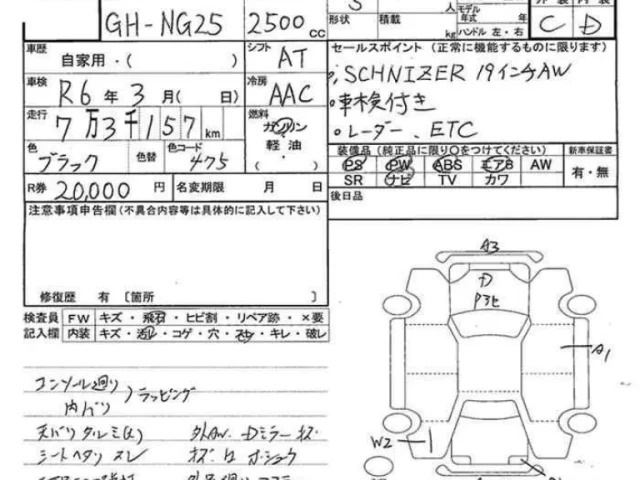 GH-NG25 2500 cc
形状 積載 人 kg
モデル年式 年
ハンドル 左・右
C D
車歴 自家用・( )
シフト AT
セールスポイント(正常に機能するものに限ります)
車検 R6年 3月( 日)
冷房 AAC
・SCHNIZER 19インチAW
・車検付き
・レーダー、ETC
走行 7万3千157km
燃料 ガソリン・軽油・
色 ブラック 色替 色コード 475
装備品(純正品に限り○をつけてください) 新車保証書
PS PW ABS エアB AW 有・無
SR ナビ TV カワ
R券 20,000円 名変期限 月 日
後日品
注意事項申告欄(不具合内容等は具体的に記入して下さい)
修復歴 有〔箇所 〕
検査員記入欄
FW キズ・飛石・ヒビ割・リペア跡・×要
内装 キズ・汚レ・コゲ・穴・スレ・キレ・破レ
コンソール廻り
内バリ
ラッピング
天バリタルミ(大)
シートヘタリ スレ
外AW・Dミラーキズ
A3
D
A1
W2